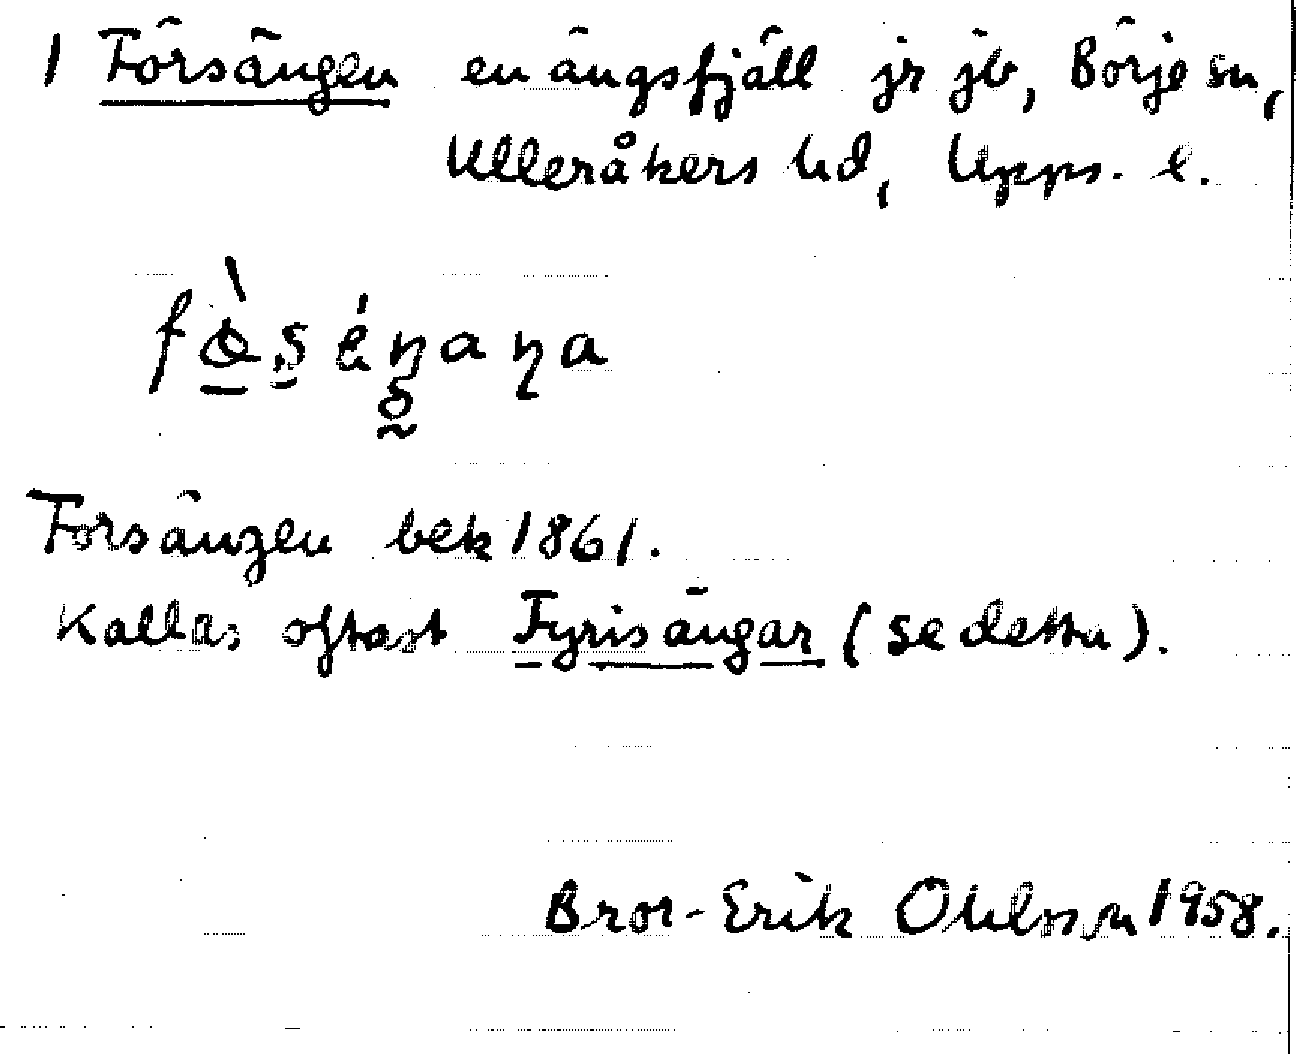 1 Försängen en ängsfjäll jr jb, Börje sn,
Ulleråkers hd, Upps. l.
Forsängen bek 1861.
Kallas oftast Fyrisängar (se detta).
Bror-Erik Ohlsson 1958.